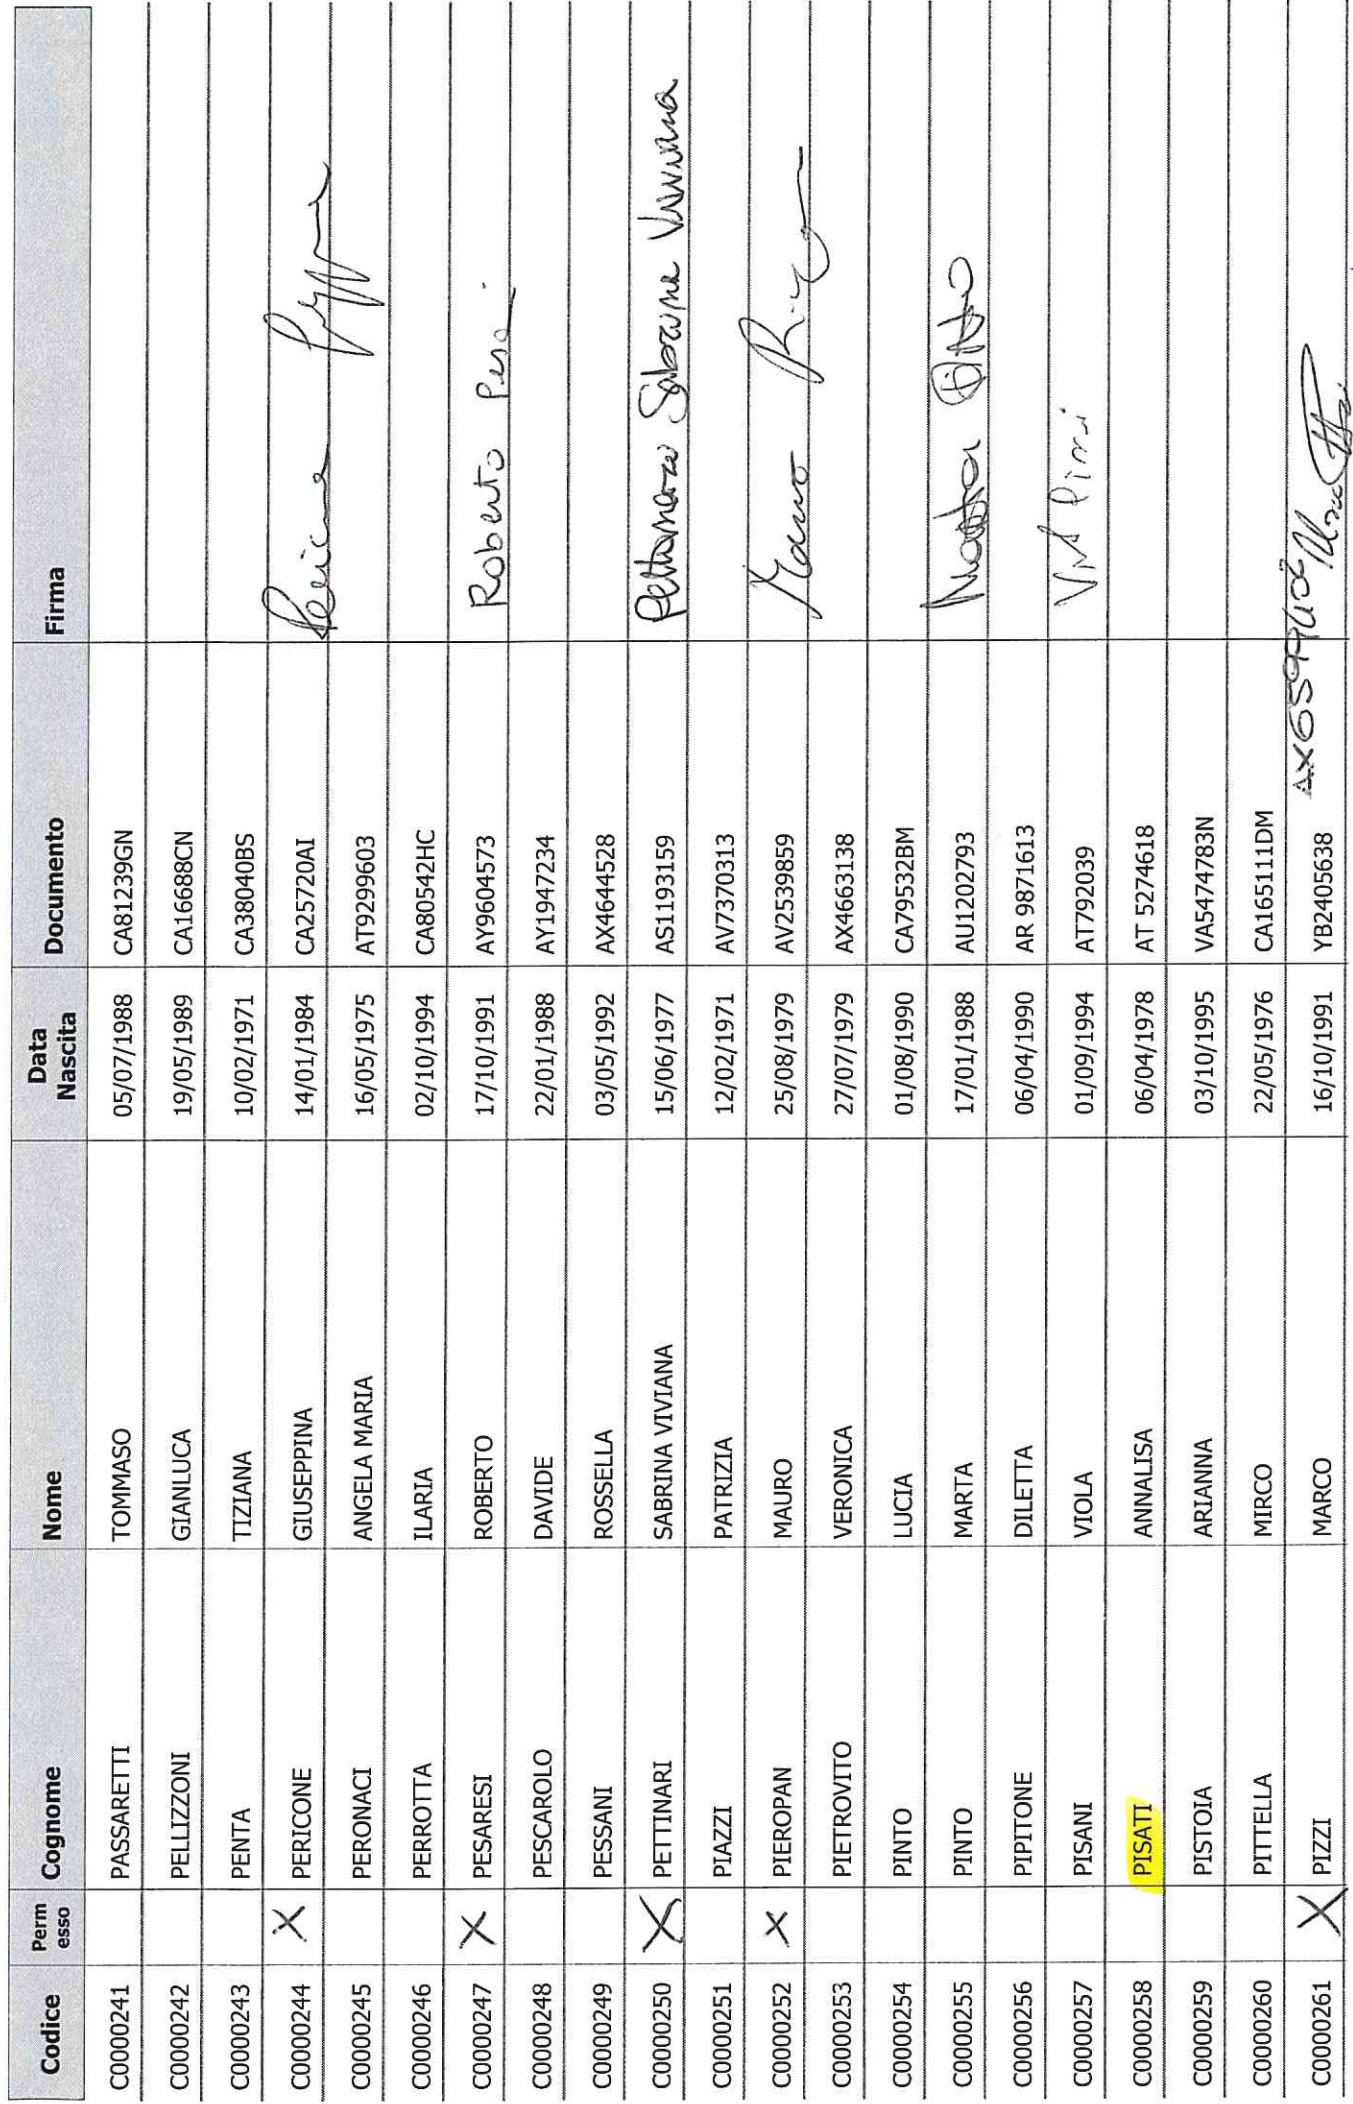 Codice Perm esso Cognome Nome Data Nascita Documento Firma
C0000241 PASSARETTI TOMMASO 05/07/1988 CA81239GN
C0000242 PELLIZZONI GIANLUCA 19/05/1989 CA16688CN
C0000243 PENTA TIZIANA 10/02/1971 CA38040BS
C0000244 X PERICONE GIUSEPPINA 14/01/1984 CA25720AI
C0000245 PERONACI ANGELA MARIA 16/05/1975 AT9299603
C0000246 PERROTTA ILARIA 02/10/1994 CA80542HC
C0000247 X PESARESI ROBERTO 17/10/1991 AY9604573 Roberto
C0000248 PESCAROLO DAVIDE 22/01/1988 AY1947234
C0000249 PESSANI ROSSELLA 03/05/1992 AX4644528
C0000250 X PETTINARI SABRINA VIVIANA 15/06/1977 AS1193159 Pettinari Sabrina Viviana
C0000251 PIAZZI PATRIZIA 12/02/1971 AV7370313
C0000252 X PIEROPAN MAURO 25/08/1979 AV2539859 Mauro
C0000253 PIETROVITO VERONICA 27/07/1979 AX4663138
C0000254 PINTO LUCIA 01/08/1990 CA79532BM
C0000255 PINTO MARTA 17/01/1988 AU1202793
C0000256 PIPITONE DILETTA 06/04/1990 AR 9871613
C0000257 PISANI VIOLA 01/09/1994 AT792039
C0000258 PISATI ANNALISA 06/04/1978 AT 5274618
C0000259 PISTOIA ARIANNA 03/10/1995 VA5474783N
C0000260 PITTELLA MIRCO 22/05/1976 CA165111DM
C0000261 X PIZZI MARCO 16/10/1991 YB2405638